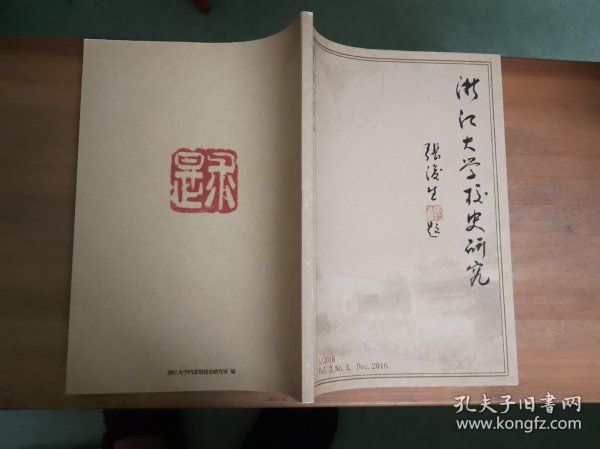 浙江大学校史研究
张浚生
题
3/2016
Vol.3,No.3, Dec. 2016
求是
浙江大学档案馆校史研究室 编
孔夫子旧书网
www.kongfz.com